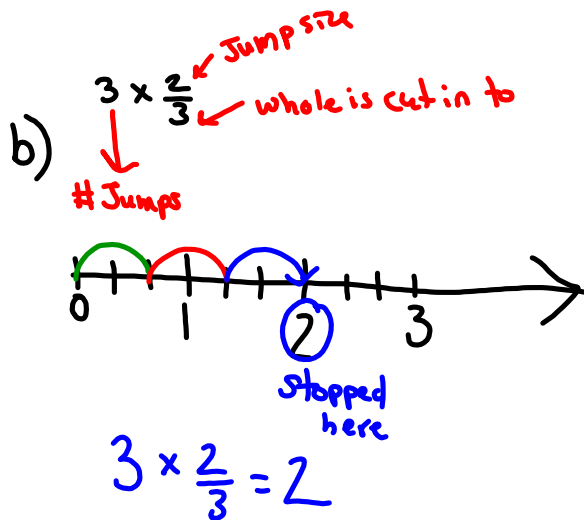 Jump size
3 × 2/3
whole is cut in to
b)
# Jumps
0 1 2 3
stopped
here
3 × 2/3 = 2